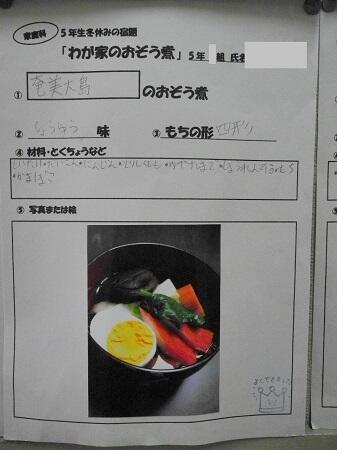 家庭科 5年生冬休みの宿題
「わが家のおぞう煮」 5年 組 氏名
① 奄美大島 のおぞう煮
② しょうゆ 味 ③ もちの形 四形
④ 材料・とくちょうなど
しいたけ・だいこん・にんじん・とりにくもも・ゆでたまご・ほうれんそう・もち
・かまぼこ
⑤ 写真または絵
よくできました